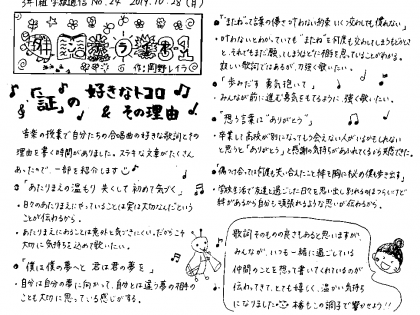 3年1組 学級通信 No.24 2019.10.28(月)
作:岡野レイラ
『証』の 好きなトコロ
& その理由
音楽の授業で自分たちの合唱曲の好きな歌詞とその
理由を書く時間がありました。ステキな文章がたくさん
あったので、一部を紹介します
●「あたりまえの温もり 失くして 初めて気づく」
・日々のあたりまえにやっていることは実は大切なんだという
ことが伝わるから。
・あたりまえにあることは意外と気づきにくい。だからこそ
大切に気持ちを込めて歌いたい。
●「僕は僕の夢へと 君は君の夢を」
・自分は自分の夢に向かって、自分とは違う夢の相手の
ことも大切に思っている感じがする。
●「"またね"って言葉の儚さ 叶わない約束 いくつ交わしても慣れない」
・叶わないとわかっていても"またね"を何度も交わしてしまうもどかしさ
と、それでもまだ願ってしまうほどに相手を思っていることがわかる。
寂しい歌詞ではあるが、力強く歌いたい。
●「歩みだす 勇気抱いて」
・みんなが前に進む勇気をもてるように、強く歌いたい。
●「想う言葉は"ありがとう"」
・卒業して高校が別になってしもう会えない人がいるかもしれない
と思うと「ありがとう」と感謝の気持ちがあふれてくるから
●「傷つけ合っては何度も笑い合えたこと 絆を胸に秘め 僕も歩き出す」
・学校生活で友達と過ごした日々を思い出し、別れるのはつらいけど
絆があるから自分も頑張れるような思いが伝わるから。
歌詞そのものの良さもあると思いますが、
みんなが、いつも一緒に過ごしている
仲間のことを想って書いてくれているのが
伝わってきて、とても嬉しく、温かい気持ち
になりました 本番もこの調子で響かせよう!!